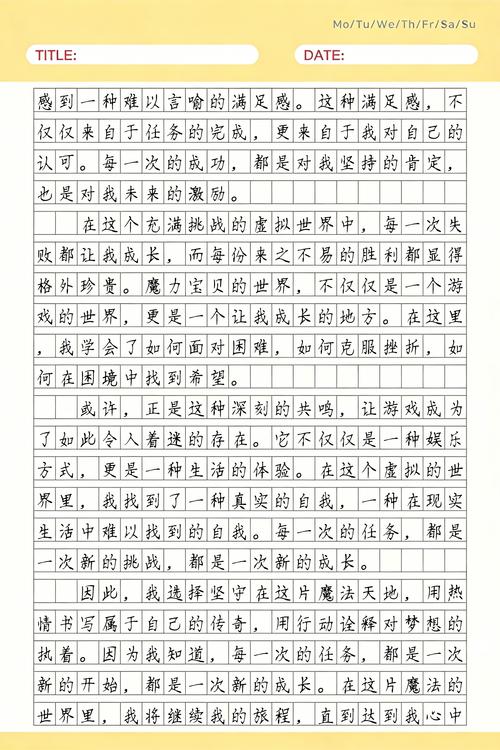 Mo/Tu/We/Th/Fr/Sa/Su
TITLE: DATE:
感到一种难以言喻的满足感。这种满足感，不
仅仅来自于任务的完成，更来自于我对自己的
认可。每一次的成功，都是对我坚持的肯定，
也是对我未来的激励。
在这个充满挑战的虚拟世界中，每一次失
败都让我成长，而每份来之不易的胜利都显得
格外珍贵。魔力宝贝的世界，不仅仅是一个游
戏的世界，更是一个让我成长的地方。在这里
，我学会了如何面对困难，如何克服挫折，如
何在困境中找到希望。
或许，正是这种深刻的共鸣，让游戏成为
了如此令人着迷的存在。它不仅仅是一种娱乐
方式，更是一种生活的体验。在这个虚拟的世
界里，我找到了一种真实的自我，一种在现实
生活中难以找到的自我。每一次的任务，都是
一次新的挑战，都是一次新的成长。
因此，我选择坚守在这片魔法天地，用热
情书写属于自己的传奇，用行动诠释对梦想的
执着。因为我知道，每一次的任务，都是一次
新的开始，都是一次新的成长。在这片魔法的
世界里，我将继续我的旅程，直到达到我心中